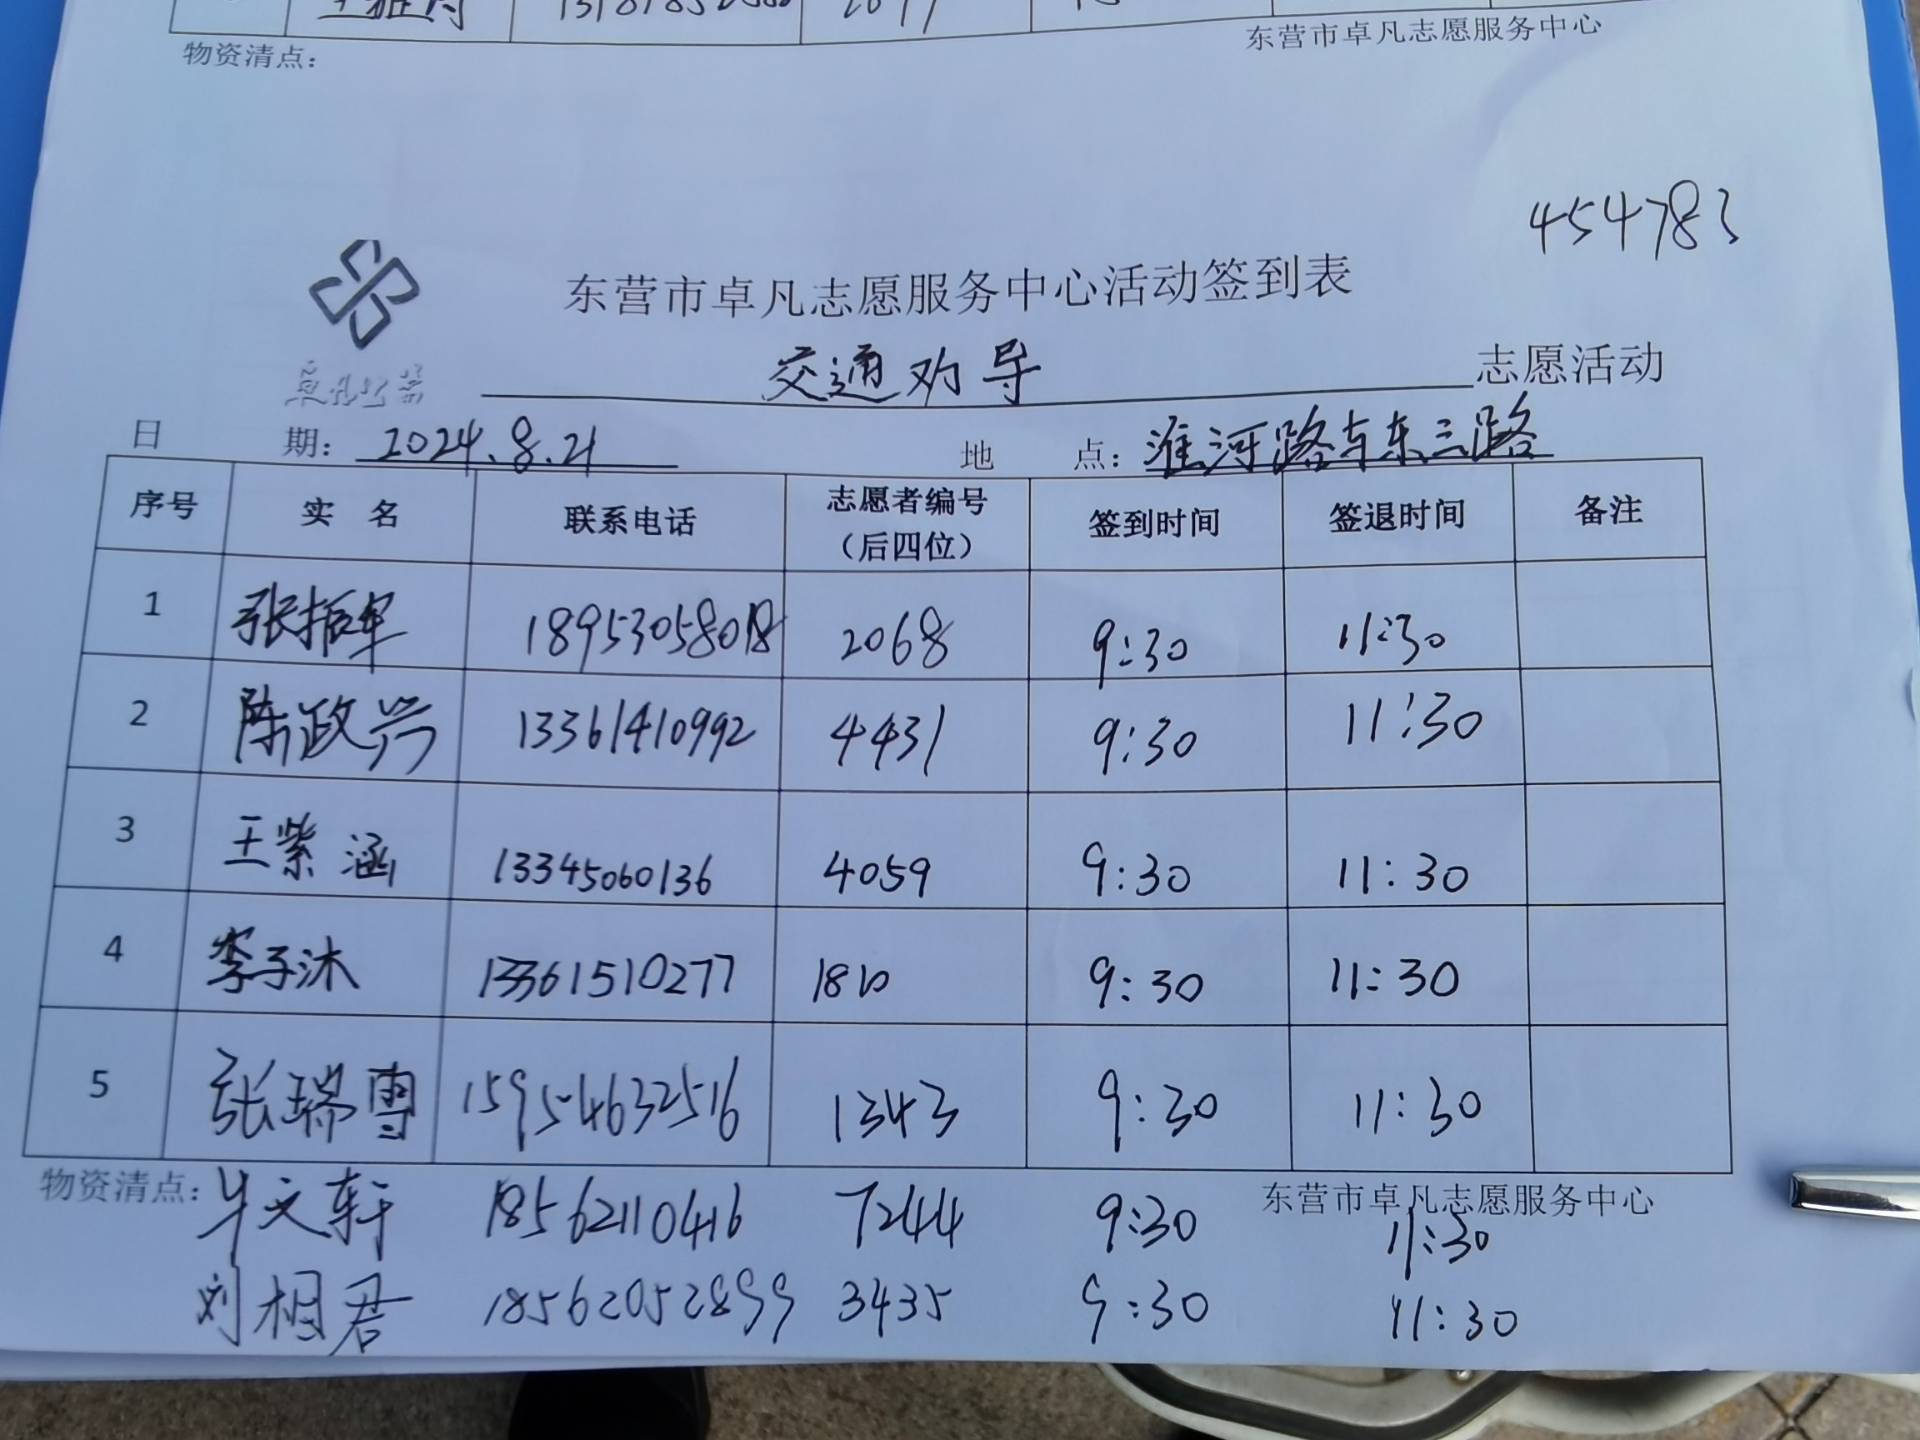 物资清点：
东营市卓凡志愿服务中心
454783
东营市卓凡志愿服务中心活动签到表
卓凡公益
交通劝导 志愿活动
日 期：2024.8.21 地 点：淮河路与东三路
序号 实 名 联系电话 志愿者编号（后四位） 签到时间 签退时间 备注
1 张振军 18953058018 2068 9:30 11:30
2 陈政兴 13361410992 4431 9:30 11:30
3 王紫涵 13345060136 4059 9:30 11:30
4 李子沐 13361510277 1810 9:30 11:30
5 张瑞雪 15954632516 1343 9:30 11:30
物资清点： 东营市卓凡志愿服务中心
毕文轩 18562110416 7244 9:30 11:30
刘相君 18562052899 3435 9:30 11:30